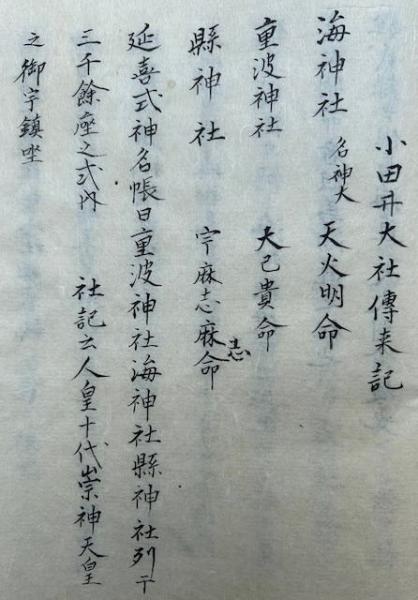 小田井大社傳来記
海神社 名神大 天火明命
重波神社 大己貴命
縣神社 宇麻志麻志命
延喜式神名帳曰重波神社海神社縣神社列于
三千餘座之式内 社記云人皇十代崇神天皇
之御宇鎮坐